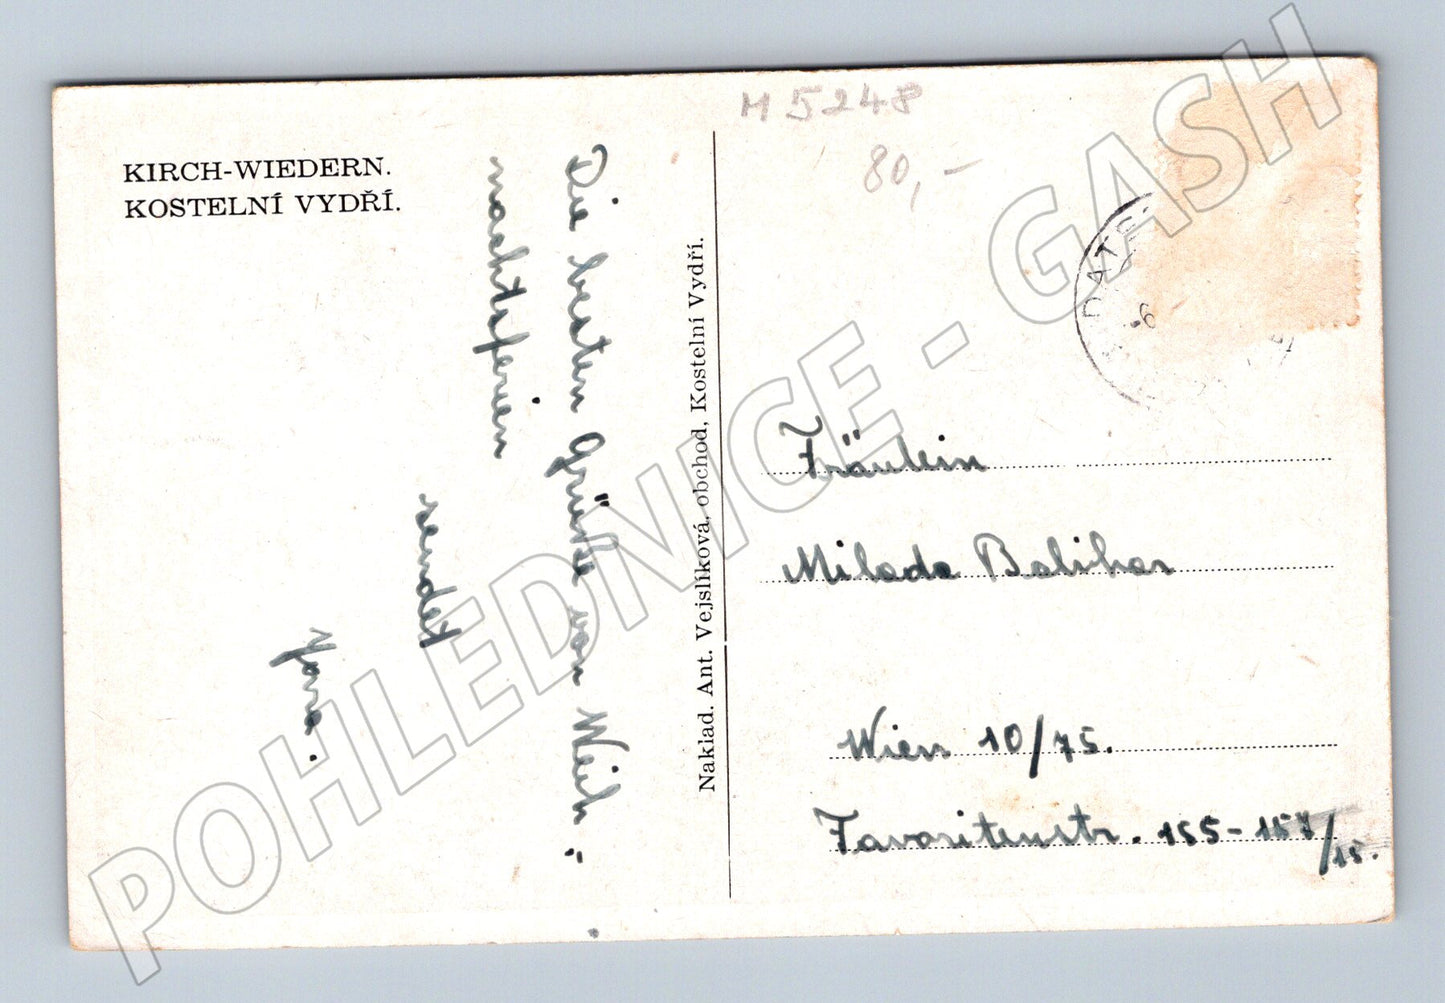 KIRCH-WIEDERN.
KOSTELNÍ VYDŘÍ.
Die besten Grüße von Weih„
nachtsferien
sendet
Jara.
Naklad. Ant. Vejslíková, obchod, Kostelní Vydří.
M 5248
80,-
DATS
6
Fräulein
Milada Balihar
Wien 10/75.
Favoritenstr. 155-157/15.
POHLEDNICE - GASH